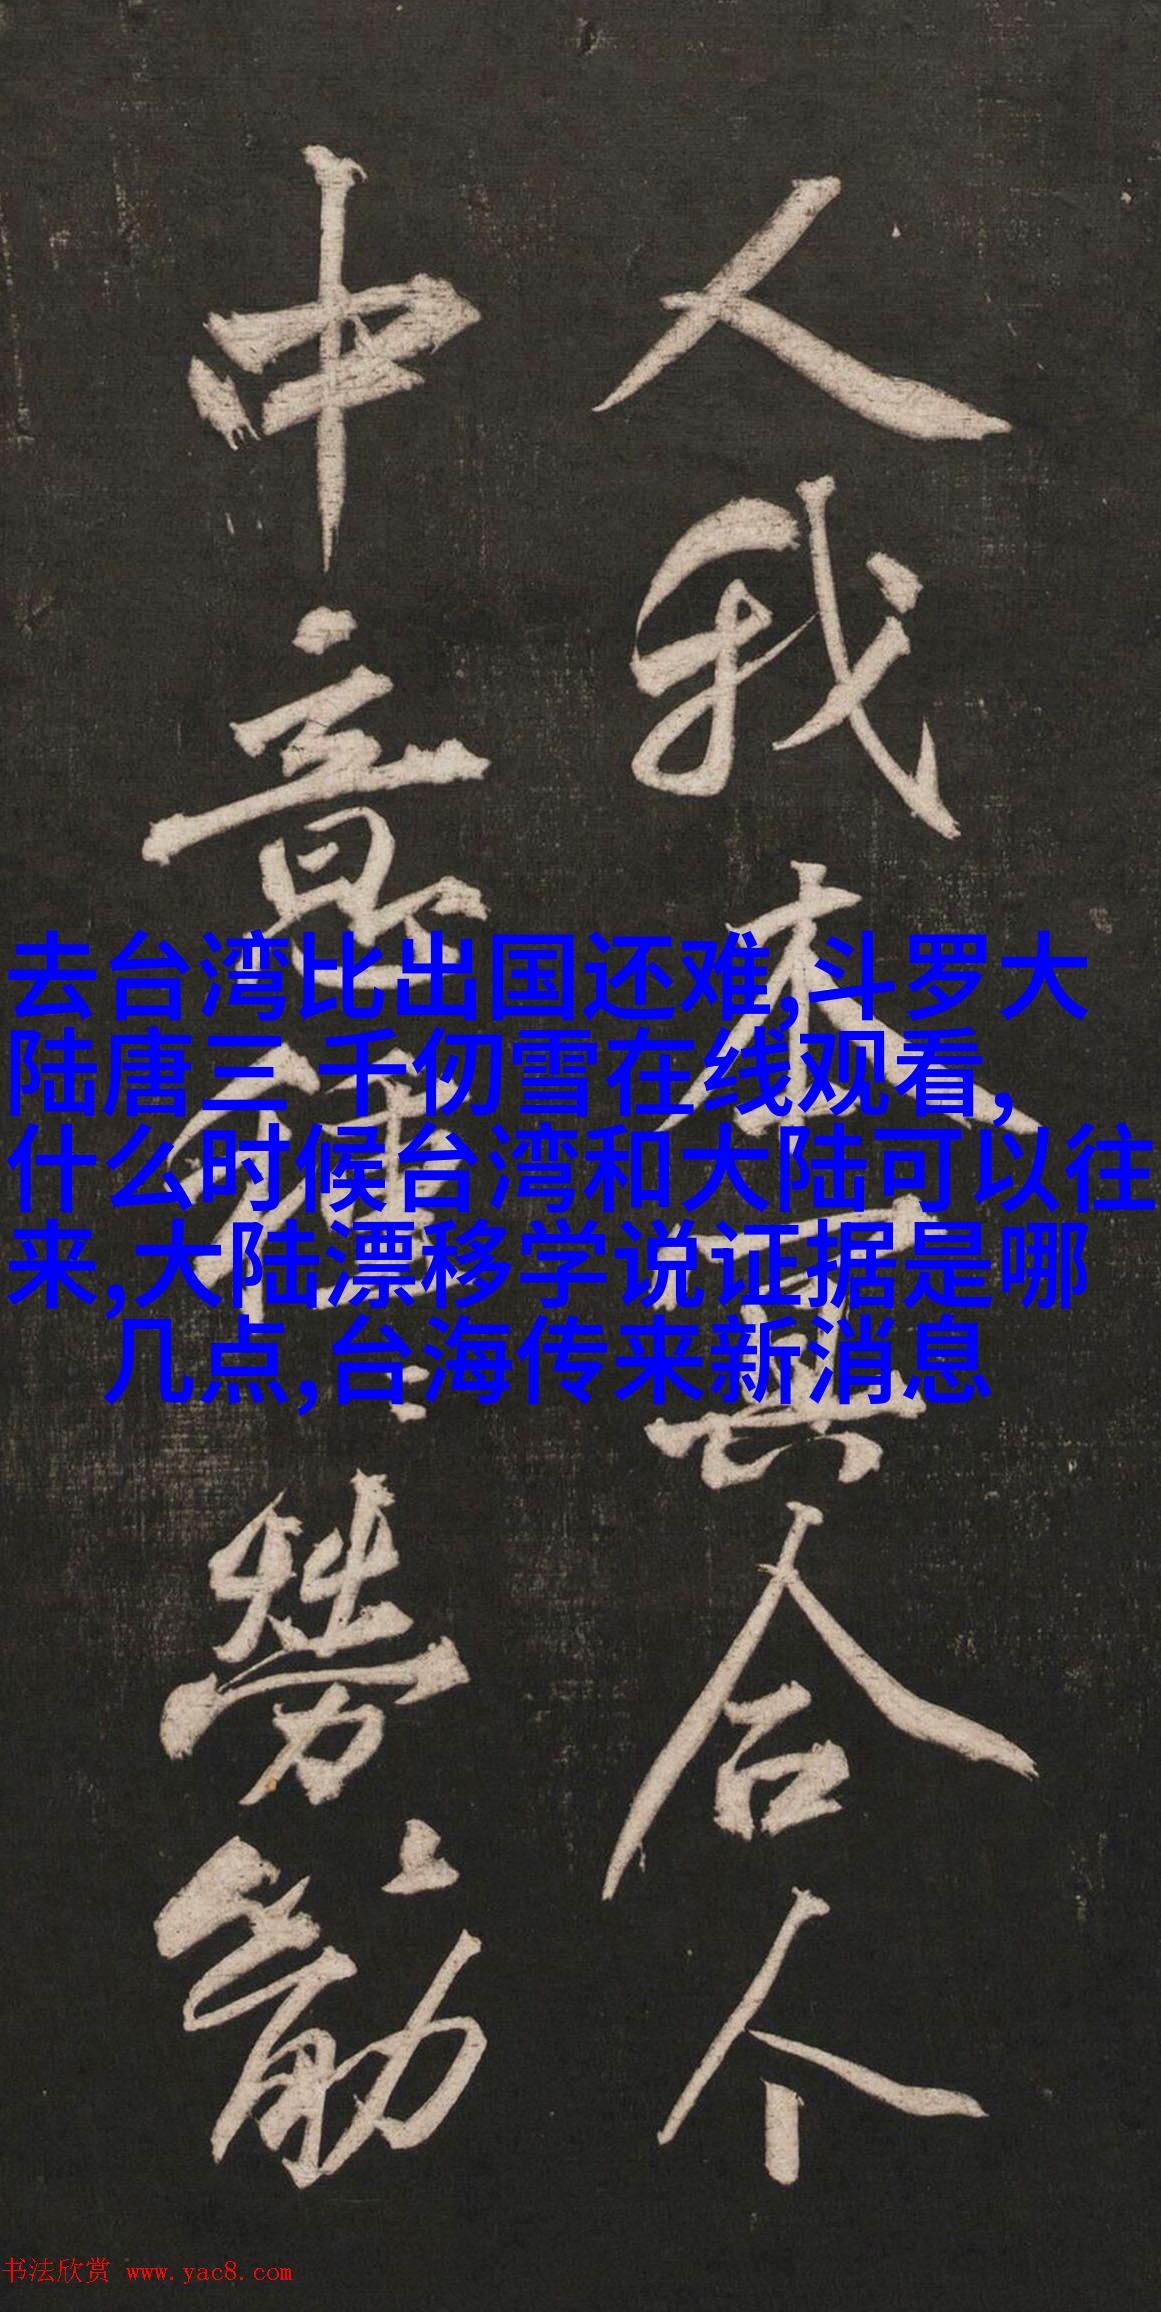 人我本一具合人个
中意种种劳劳筋
去台湾比出国还难,斗罗大
陆唐三 千仞雪在线观看,
什么时候台湾和大陆可以往
来,大陆漂移学说证据是哪
几点,台海传来新消息
书法欣赏 www.yac8.com